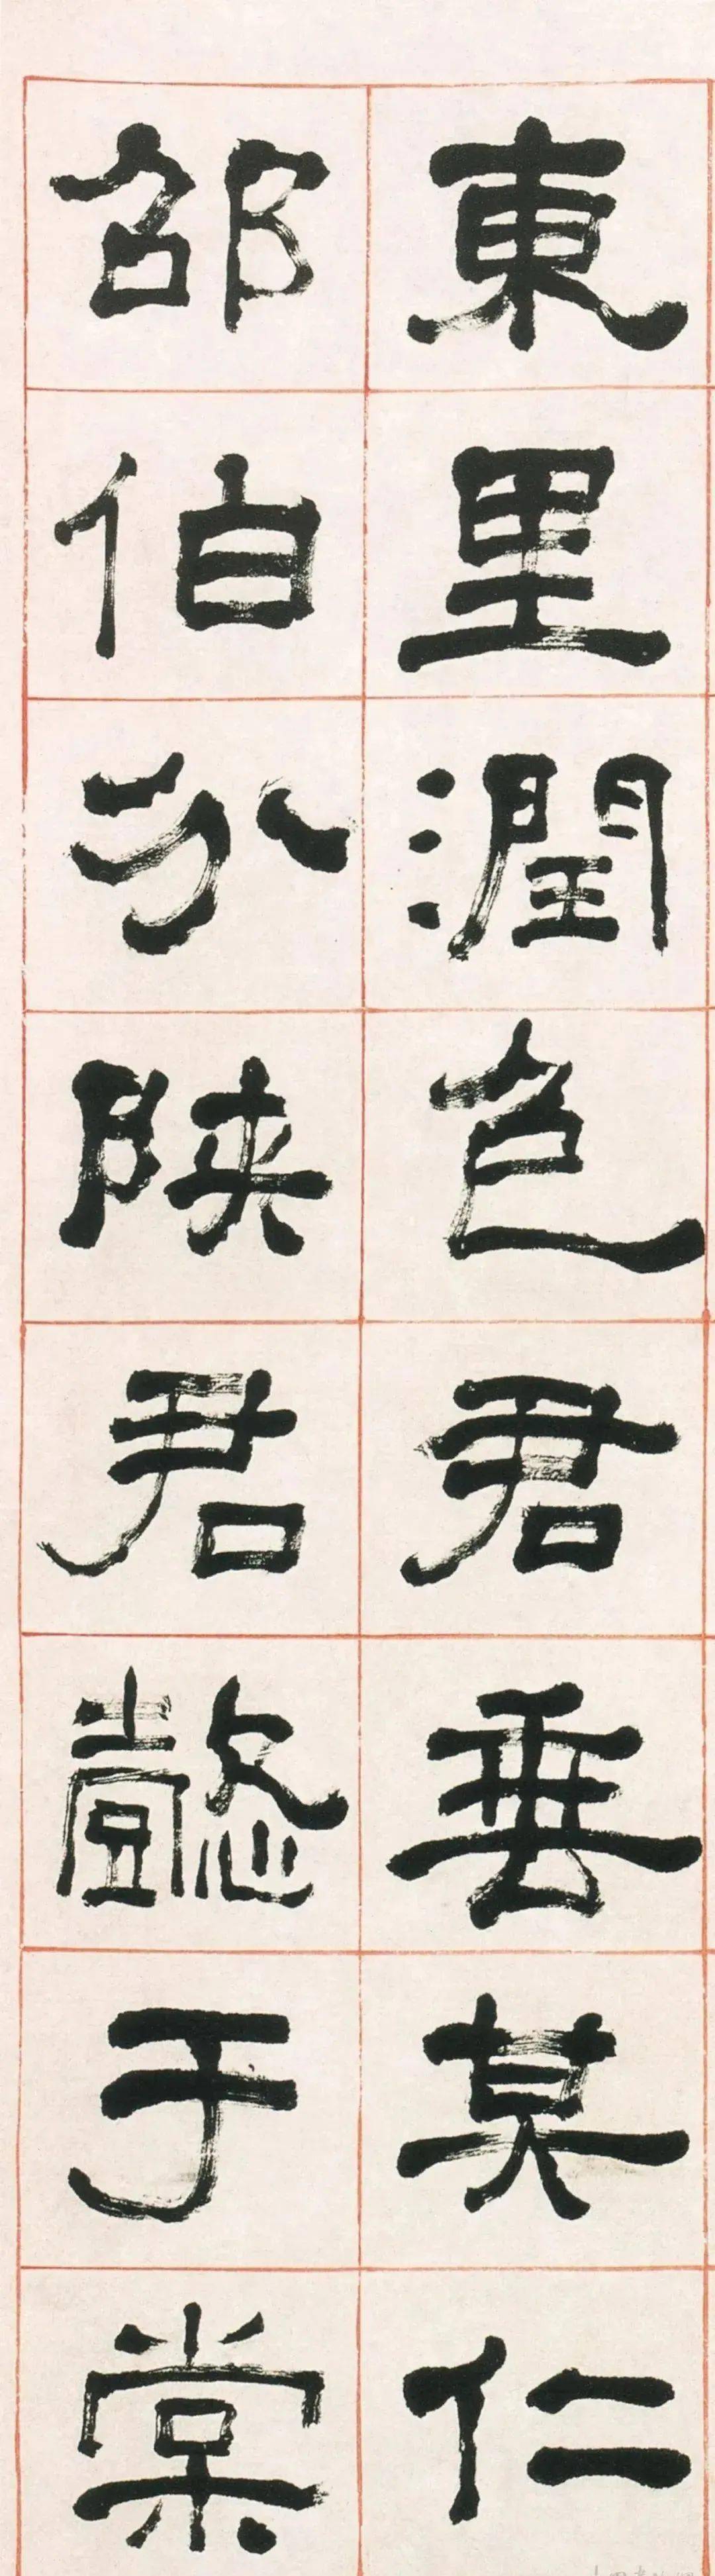 東里潤色君垂其仁
邵伯分陝君懿于棠